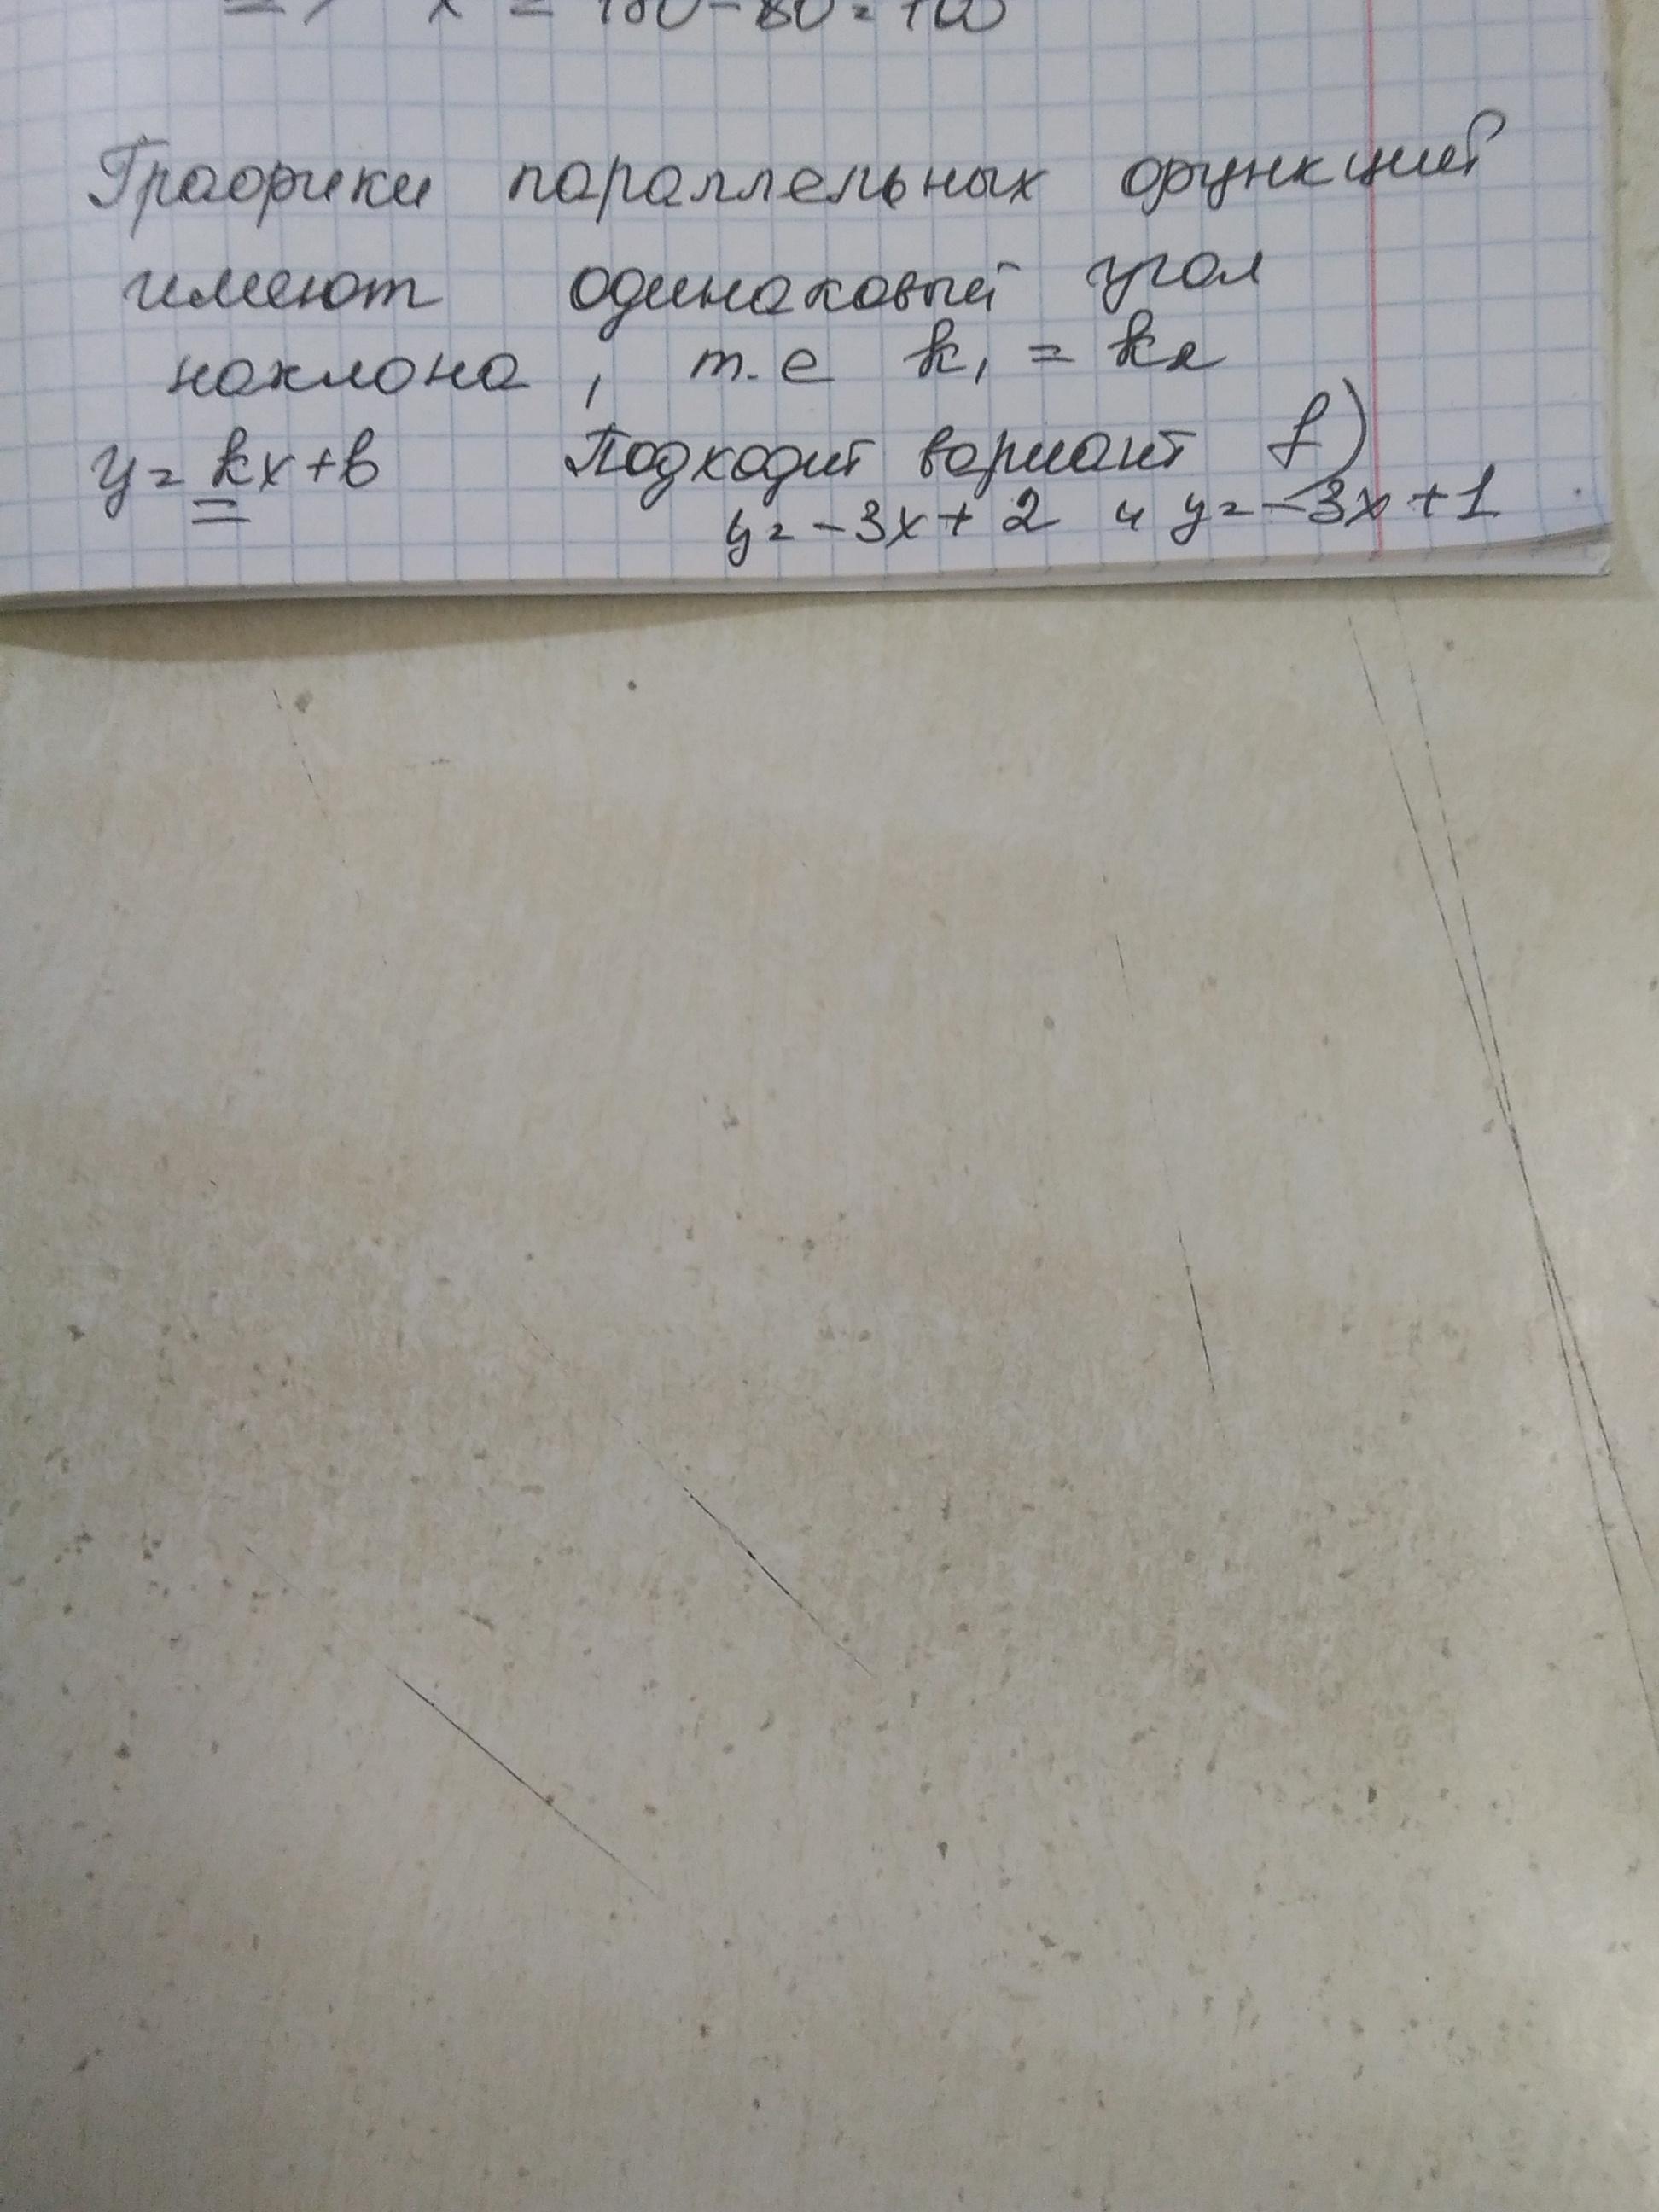 => x = 180-80=100
Графики параллельных функций
имеют одинаковый угол
наклона, т.е k₁ = k₂
y=kx+b Подходит вариант f)
y=-3x+2 и y=-3x+1